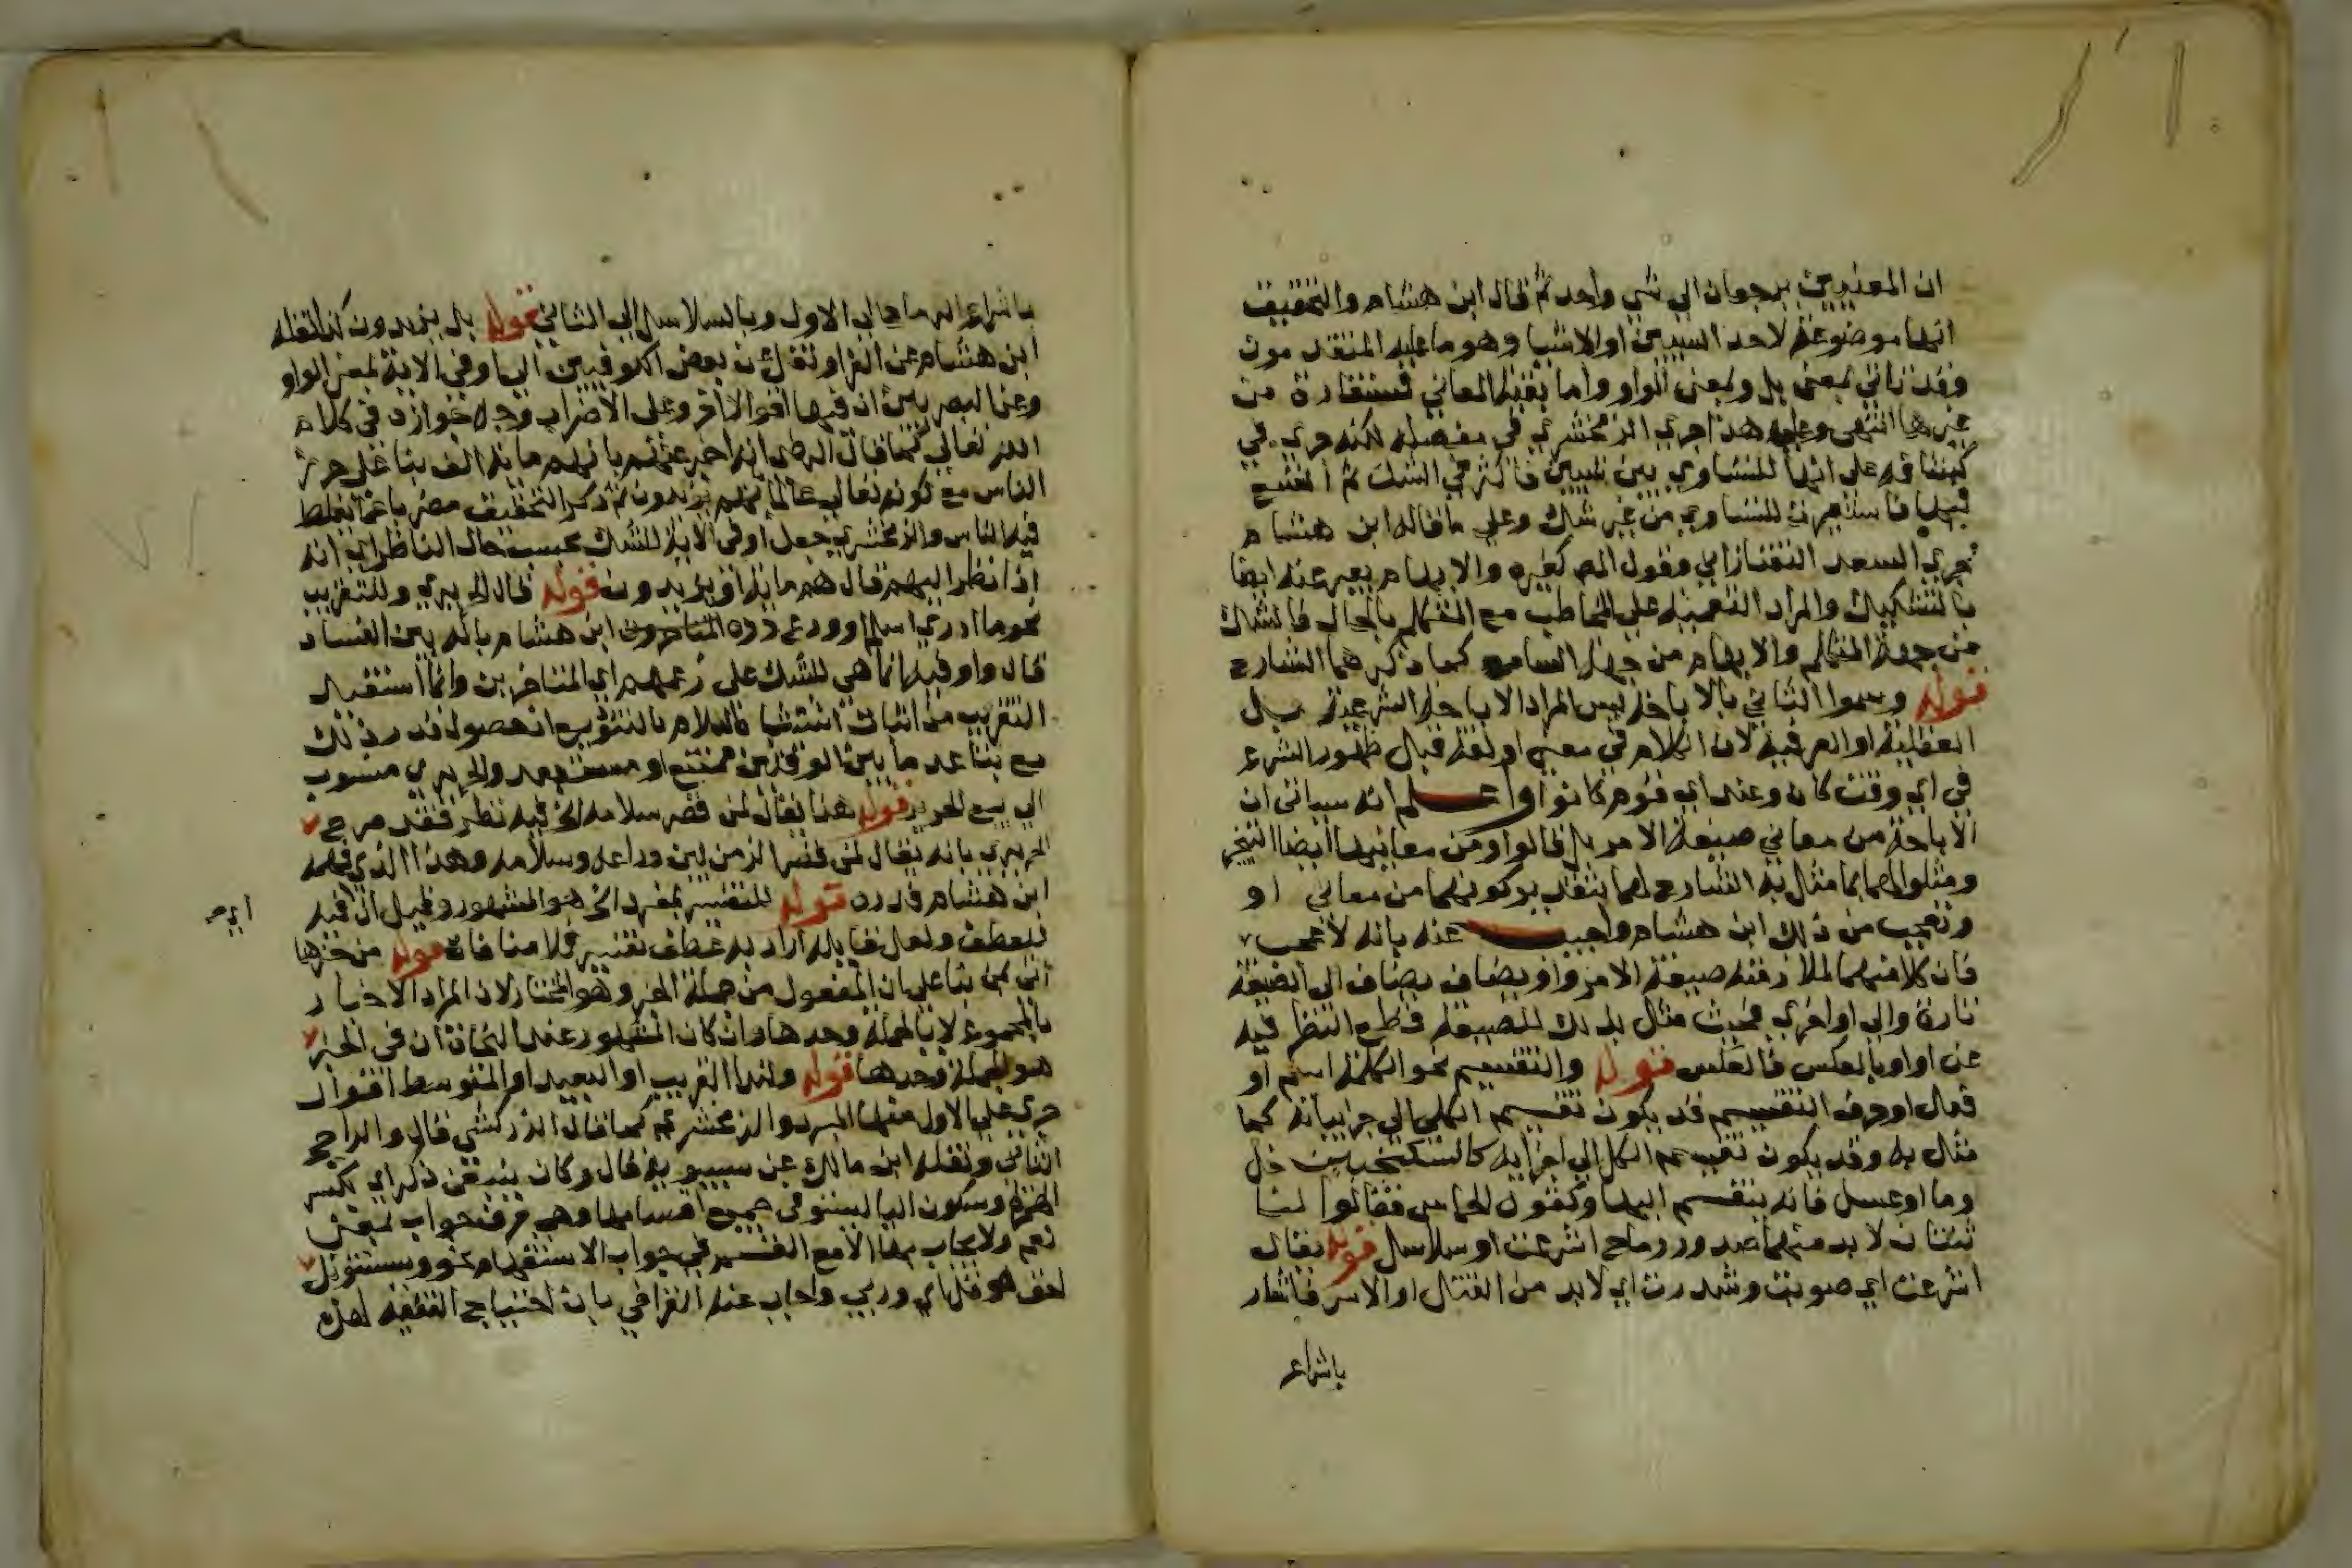 ان المعنيين يرجعان الي شي واحد ثم قال ابن هشام والتحقيق
انها موضوعة لاحد الشيين او الاشيا وهو ما عليه المتقدمون
وقد تاتي بمعني بل وبمعني الواو واما بقية المعاني فمستفادة من
غيرها انتهي وعلي هذا جري الزمخشري في مفصله لكنه جري في
كشافه علي انها للتساوي بين شيين فاكثر في الشك ثم اتسع
فيها فاستعيرت للتساوي من غير شك وعلي ما قاله ابن هشام
جري السعد التفتازاني وقول المص كغيره والابهام يعبر عنه ايضا
بالتشكيك والمراد التعمية علي المخاطب مع المتكلم بالحال فالشك
من جهة المتكلم والابهام من جهة السامع كما ذكرهما الشارح
قوله وسموا الثاني بالاباحة ليس المراد الاباحة الشرعية بل
العقلية او العرفية لان الكلام في معني او لغة قبل ظهور الشرع
في اي وقت كان وعند اي قوم كانوا واعلم انه سياتي ان
الاباحة من معاني صيغة الامر بل قالوا ومن معانيها ايضا التخير
ومثلوا لهما بما مثل به الشارح لهما بتقدير كونهما من معاني او
وتعجب من ذلك ابن هشام واجيب عنه بانه لا عجب
فان كلا منهما لملازمته صيغة الامر واو يضاف يضاف الي الصيغة
تارة والي او اخري فحيث مثل بذلك للصيغة قطع النظر فيه
عن او او بالعكس فالعكس قوله والتقسيم نحو الكلمة اسم او
فعل او حرف التقسيم قد يكون تقسيم الكلي الي جزاياته كما
مثل به وقد يكون تقسيم الكل الي اجزايه كالسكنجبين خل
وما او عسل فانه ينقسم اليها وكقول الحماسي فقالوا لنا
ثنتان لا بد منهما صدور رماح اشرعت او سلاسل قوله يقال
اشرعت اي صوبت وشددت اي لابد من القتال او الاسر فاشار
باشراع
باشراع الرماح الي الاول وبالسلاسل الي الثاني قوله بل يزيدون كذا نقله
ابن هشام عن الفرا ونقل عن بعض الكوفيين انها في الاية بمعني الواو
وعن البصريين ان فيها اقوالا اخر وعلي الاضراب وجه جوازه في كلام
الله تعالي كما قال الرضي انه اخبر عنهم بانهم ماية الف بنا علي حرز
الناس مع كونه تعالي عالما بانهم يزيدون ثم ذكر التحقيق مضربا عما يغلط
فيه الناس والزمخشري جعل او في الاية للشك بحسب حال الناظر اي انه
اذا نظر اليهم قال هم ماية او يزيدون قوله قال الحريري وللتقريب
نحو ما ادري اسلم او ودع رده ابن هشام بانه بين الفساد
قال واو فيه انما هي للشك علي زعمهم اي المتاخرين وانما استفيد
التقريب من اثبات اشتباه السلام بالتوديع اذ حصول ذلك
مع تباعد ما بين الوقتين ممتنع او مستبعد والحريري منسوب
الي بيع الحرير قوله هذا يقال لمن قصر سلامه الخ فيه نظر فقد صرح
الحريري بانه يقال لمن قصر الزمن بين وداعه وسلامه وهذا الذي فهمه
ابن هشام فرده قوله للتفسير بمفرد الخ هو المشهور وقيل ان فيه
ايم
للعطف ولعل قايله اراد به عطف تفسير فلا منافاة قوله من خبرها
اتي بمن بنا علي ان المفعول من جملة الخبر وهو المختار لان المراد الاخبار
بالمجموع لا بالجملة وحدها وان كان المشهور عند النحاة ان في الخبر
هو الجملة وحدها قوله ولندا القريب او البعيد او المتوسط اقوال
جري علي الاول منها المبرد والزمخشري كما قال الزركشي قال والراجح
الثاني ونقله ابن مالك عن سيبويه قال وكان ينبغي ذكر اي بكسر
الهمزة وسكون اليا ليستوفي جميع اقسامها وهي حرف جواب بمعني
نعم ولا يجاب بها الا مع القسم في جواب الاستفهام نحو ويستنبؤنك
احق هو قل اي وربي واجاب عنه العراقي بان احتياج الفقيه لهذه